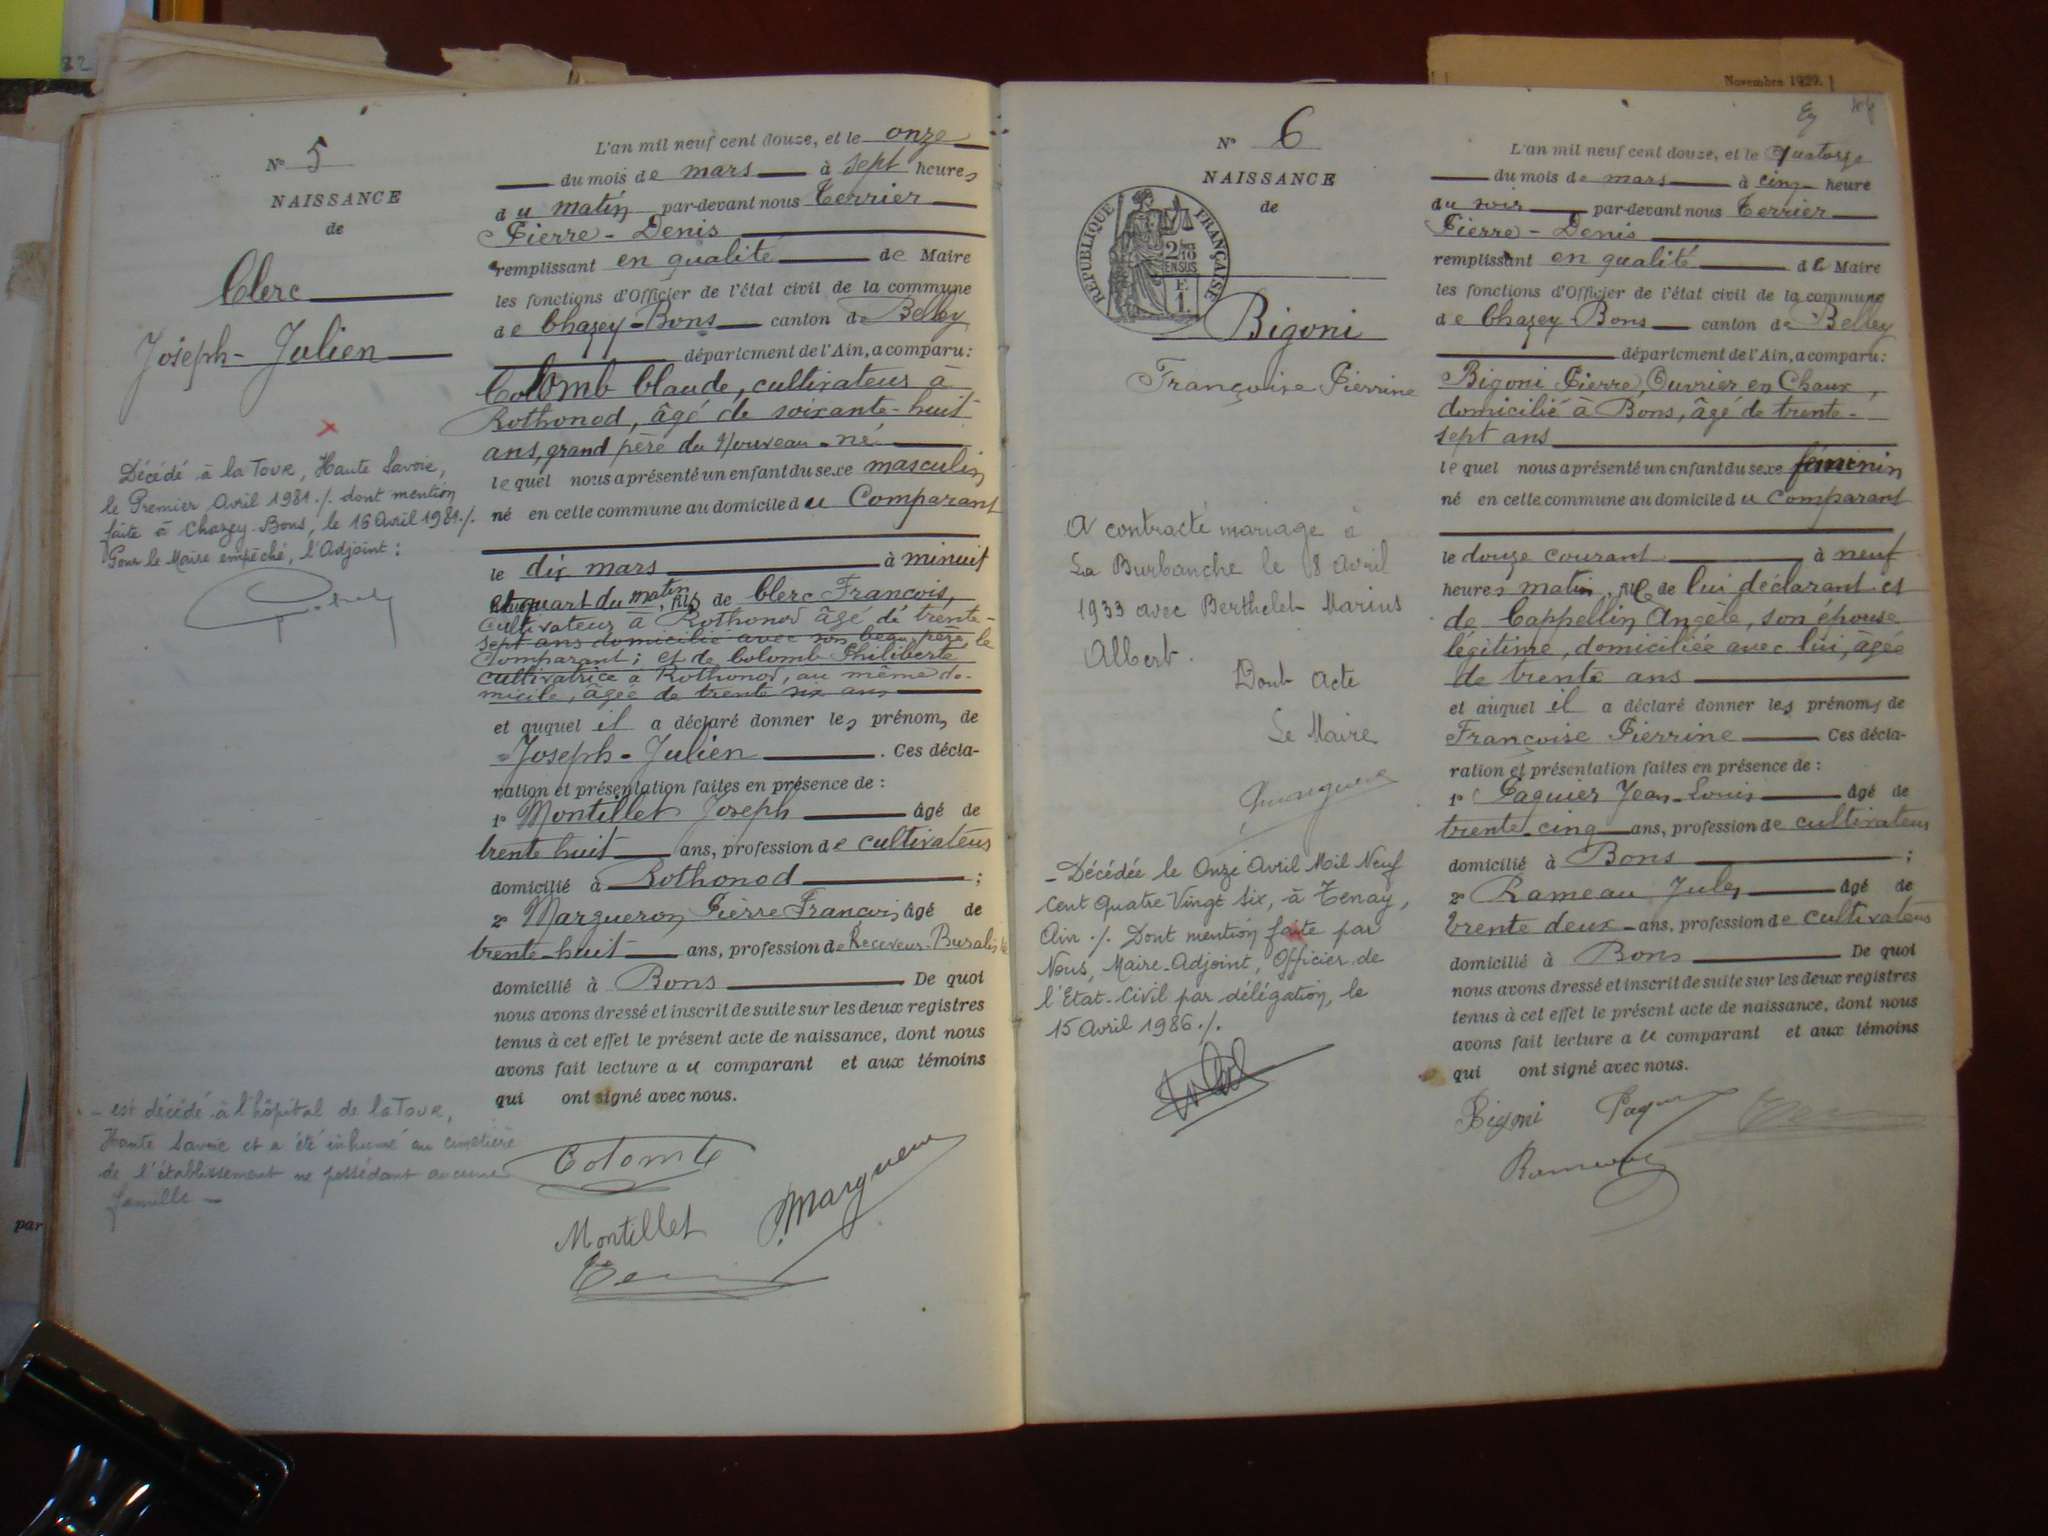 Nº 5
NAISSANCE
de
Clerc
Joseph-Julien
Décédé à la Tour, Haute Savoie,
le Premier Avril 1981 ./. dont mention
faite à Chazey-Bons, le 16 Avril 1981 ./.
Pour le Maire empêché, l'Adjoint :
- est décédé à l'hôpital de la Tour,
Haute Savoie et a été inhumé au cimetière
de l'établissement ne possédant aucune
famille -
L'an mil neuf cent douze, et le onze
du mois de mars à sept heures
du matin par-devant nous Terrier
Pierre-Denis
remplissant en qualité de Maire
les fonctions d'Officier de l'état civil de la commune
de Chazey-Bons canton de Belley
département de l'Ain, a comparu :
Colomb Claude, cultivateur à
Rothonod, âgé de soixante-huit
ans, grand père du Nouveau-né
lequel nous a présenté un enfant du sexe masculin
né en cette commune au domicile du Comparant
le dix mars à minuit
et quart du matin, fils de Clerc François,
cultivateur à Rothonod âgé de trente-
sept ans domicilié avec son beau-père, le
Comparant ; et de Colomb Philiberte
cultivatrice à Rothonod, au même do-
micile, âgée de trente six ans
et auquel il a déclaré donner les prénoms de
Joseph-Julien . Ces décla-
ration et présentation faites en présence de :
1º Montillet Joseph âgé de
trente huit ans, profession de cultivateur
domicilié à Rothonod ;
2º Margueron Pierre François âgé de
trente-huit ans, profession de Receveur-Buraliste
domicilié à Bons De quoi
nous avons dressé et inscrit de suite sur les deux registres
tenus à cet effet le présent acte de naissance, dont nous
avons fait lecture au comparant et aux témoins
qui ont signé avec nous.
Colomb
Margueron
Montillet
par
Novembre 1929.
Nº 6
NAISSANCE
de
RÉPUBLIQUE FRANÇAISE
2/10
EN SUS
F.
1.
Bigoni
Françoise Pierrine
A contracté mariage à
La Burbanche le 8 Avril
1933 avec Berthelet Marius
Albert.
Dont Acte
Le Maire
- Décédée le Onze Avril Mil Neuf
Cent Quatre Vingt Six, à Tenay,
Ain ./. Dont mention faite par
Nous, Maire-Adjoint, Officier de
l'Etat-Civil par délégation, le
15 Avril 1986 ./.
L'an mil neuf cent douze, et le Quatorze
du mois de mars à cinq heure
du soir par-devant nous Terrier
Pierre-Denis
remplissant en qualité de Maire
les fonctions d'Officier de l'état civil de la commune
de Chazey-Bons canton de Belley
département de l'Ain, a comparu :
Bigoni Pierre, Ouvrier en Chaux,
domicilié à Bons, âgé de trente-
sept ans
lequel nous a présenté un enfant du sexe féminin
né en cette commune au domicile du Comparant
le douze courant à neuf
heures matin, fille de lui déclarant et
de Cappellin Angèle, son épouse
légitime, domiciliée avec lui, âgée
de trente ans
et auquel il a déclaré donner les prénoms de
Françoise Pierrine Ces décla-
ration et présentation faites en présence de :
1º Paquier Jean-Louis âgé de
trente cinq ans, profession de cultivateur
domicilié à Bons ;
2º Rameau Jules âgé de
trente deux ans, profession de cultivateur
domicilié à Bons De quoi
nous avons dressé et inscrit de suite sur les deux registres
tenus à cet effet le présent acte de naissance, dont nous
avons fait lecture au comparant et aux témoins
qui ont signé avec nous.
Bigoni
Rameau